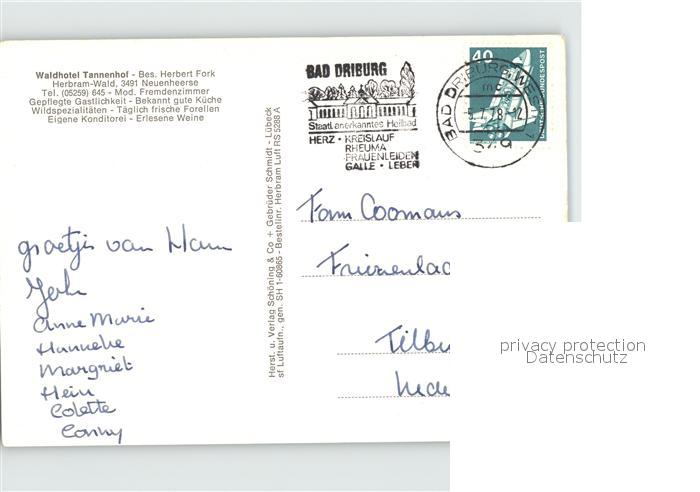 Waldhotel Tannenhof - Bes. Herbert Fork
Herbram-Wald, 3491 Neuenheerse
Tel. (05259) 645 - Mod. Fremdenzimmer
Gepflegte Gastlichkeit - Bekannt gute Küche
Wildspezialitäten - Täglich frische Forellen
Eigene Konditorei - Erlesene Weine
groetjes van
Joh
Anne Marie
Hanneke
Margriet
Hein
Colette
Conny
Herst. u. Verlag Schöning & Co + Gebrüder Schmidt - Lübeck
sf Luftaufn., gen. SH 1-60865 - Bestellnr. Herbram Luft RS 5288 A
BAD DRIBURG
Staatl. anerkanntes Heilbad
HERZ · KREISLAUF
RHEUMA
FRAUENLEIDEN
GALLE · LEBER
40
DEUTSCHE BUNDESPOST
BAD DRIBURG
Fam Coomans
Tilbu
Nede
privacy protection
Datenschutz